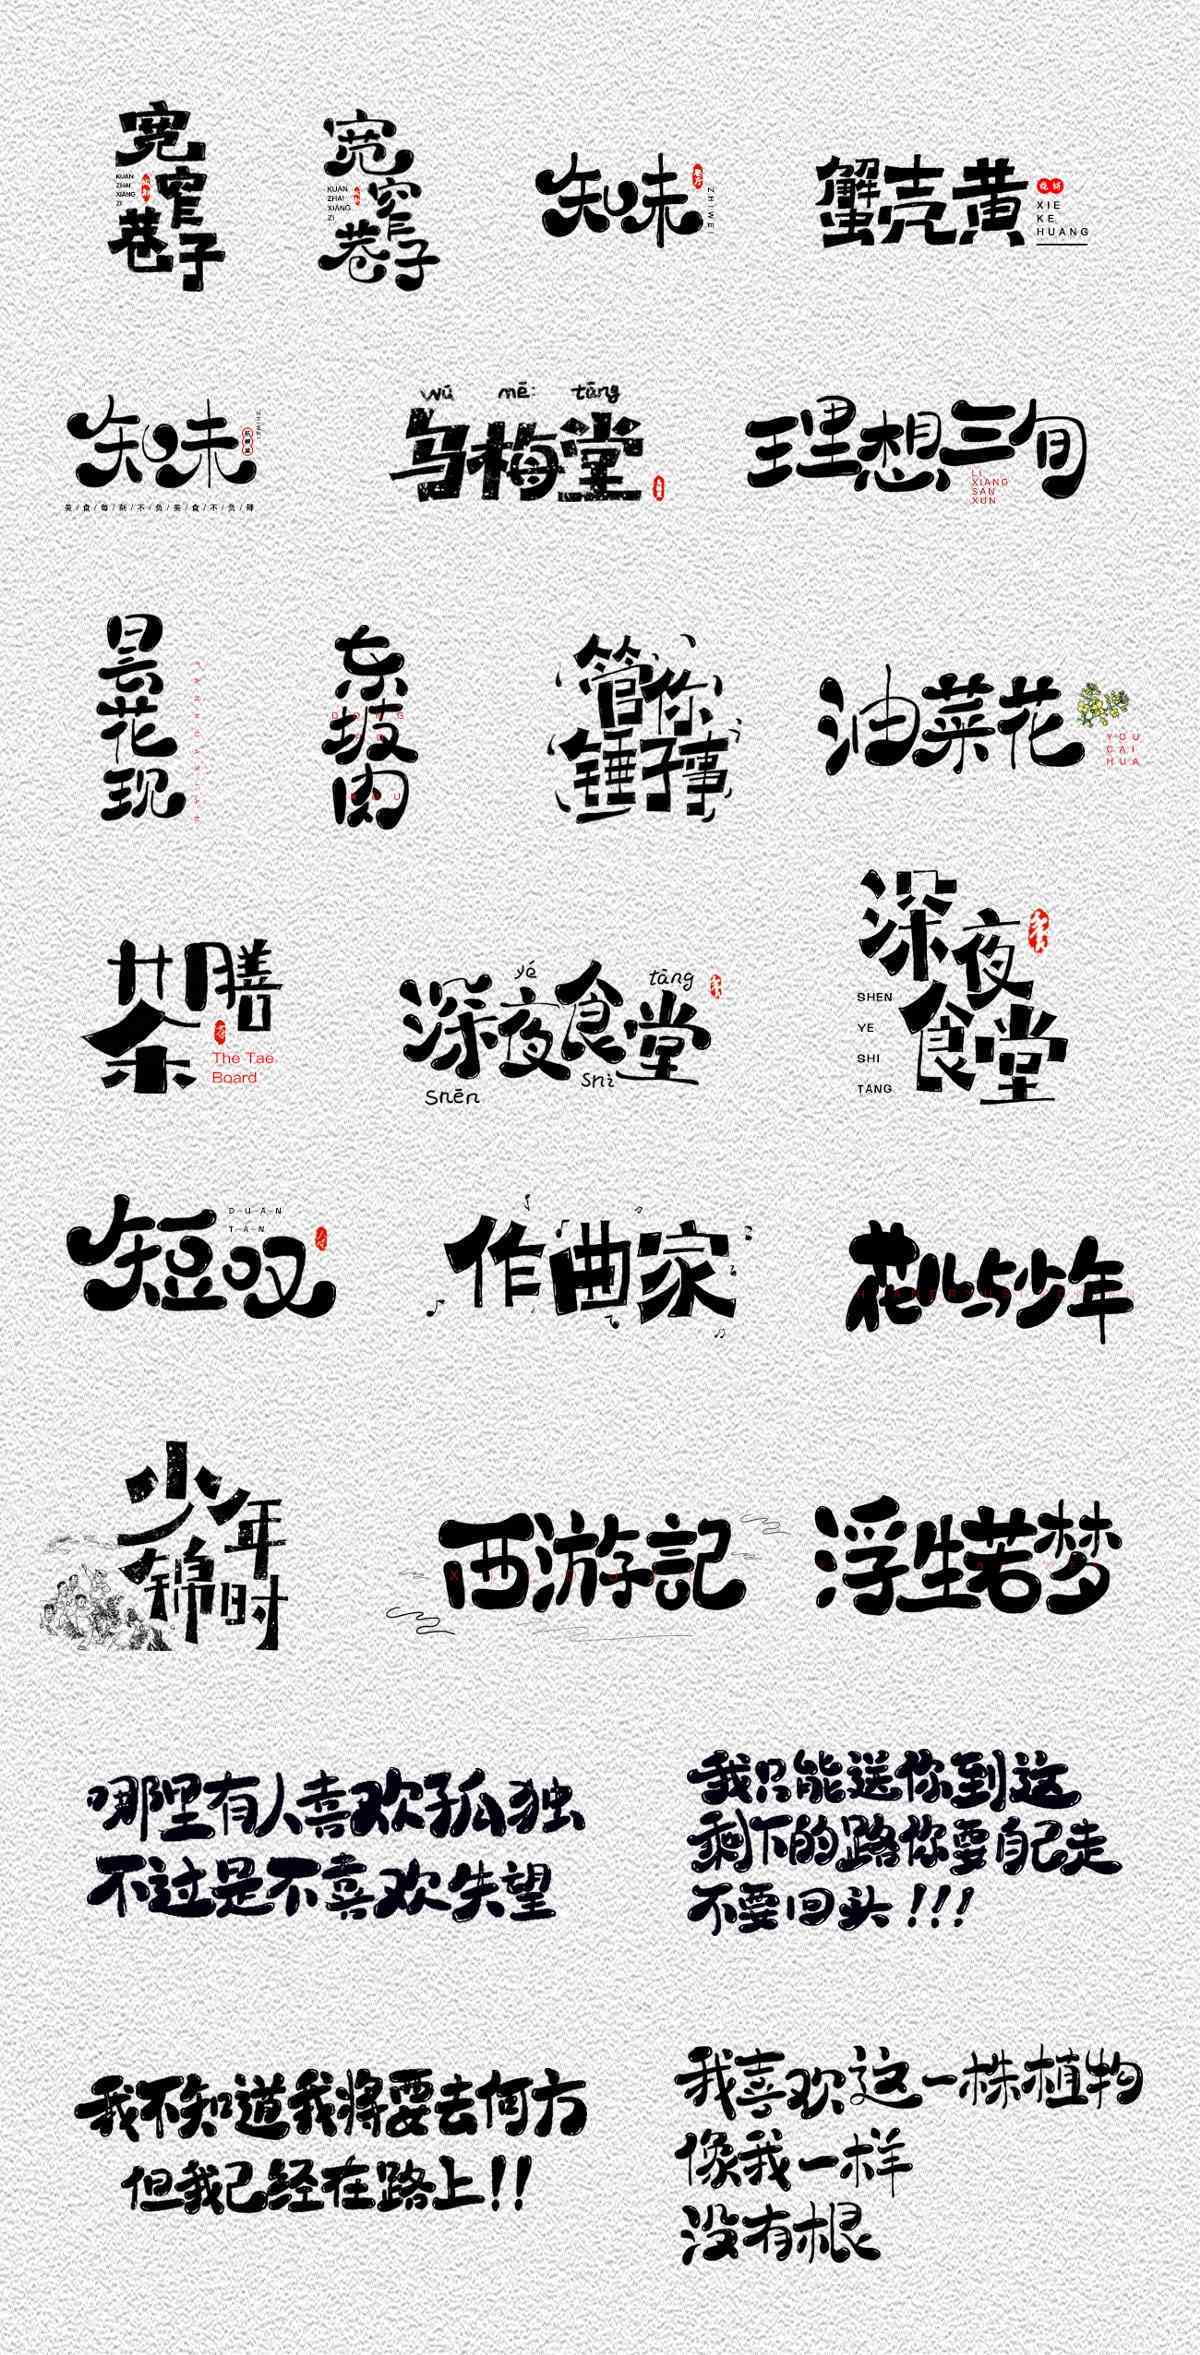 宽窄巷子
KUAN
ZHAI
XIANG
ZI
宽窄巷子
KUAN
ZHAI
XIANG
ZI
知味
ZHIWEI
蟹壳黄
烧饼
XIE
KE
HUANG
知味
美/食/每/刻/不/负/美/食/不/负/胖
wū mē: tāng
乌梅堂
理想三旬
LI
XIANG
SAN
XUN
昙花现
东坡肉
管你
锤子事
油菜花
YOU
CAI
HUA
茶膳
The Tae
Board
yé tāng
深夜食堂
Shēn Shì
深夜
食堂
SHEN
YE
SHI
TANG
短叹
DUAN
TAN
作曲家
花儿与少年
少年
锦时
西游記
浮生若梦
哪里有人喜欢孤独
不过是不喜欢失望
我只能送你到这
剩下的路你要自己走
不要回头!!!
我不知道我将要去何方
但我已经在路上!!
我喜欢这一株植物
像我一样
没有根